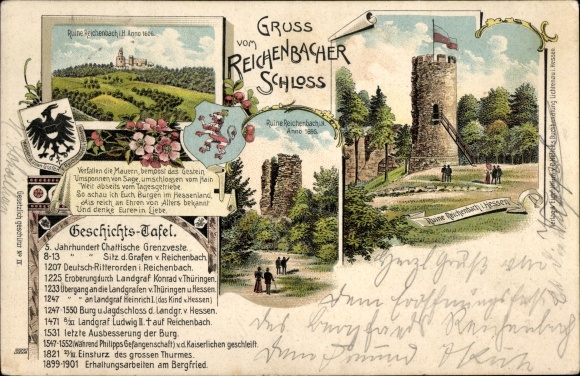 GRUSS
VOM
REICHENBACHER
SCHLOSS
Ruine Reichenbach, i. H. Anno 1606.
Verfallen die Mauern, bemoost das Gestein,
Umsponnen von Sage, umschlossen vom Hain
Weit abseits vom Tagesgetriebe.
So schau ich Euch, Burgen im Hessenland,
Als reich an Ehren von Alters bekannt
Und denke Eurer in Liebe.
Ruine Reichenbach, i. H.
Anno 1895.
Ruine Reichenbach i. Hessen
Geschichts-Tafel.
5. Jahrhundert Chattische Grenzveste.
8-13 " Sitz d. Grafen v. Reichenbach.
1207 Deutsch-Ritterorden i. Reichenbach.
1225 Eroberung durch Landgraf Konrad v. Thüringen.
1233 Übergang an die Landgrafen v. Thüringen u. Hessen.
1247 " " an Landgraf Heinrich I. (das Kind v. Hessen)
1247-1550 Burg u. Jagdschloss d. Landgr. v. Hessen.
1471 Landgraf Ludwig II. † auf Reichenbach.
1531 letzte Ausbesserung der Burg.
1547-1552 (Während Philipps Gefangenschaft) v. d. Kaiserlichen geschleift.
1821 Einsturz des grossen Thurmes.
1899-1901 Erhaltungsarbeiten am Bergfried.
Geschützt
Lichtenau i. Hessen.
Herzl. Gruß
des Bergfrieds Reichenbach